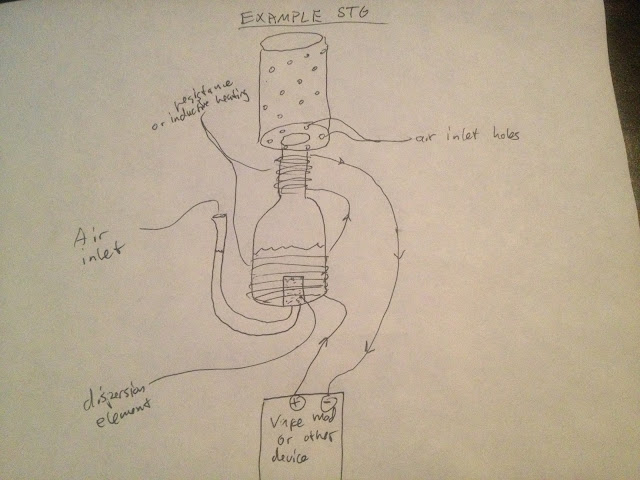 EXAMPLE STG
resistance
or inductive heating
air inlet holes
Air
inlet
dispersion
element
+ −
Vape mod
or other
device